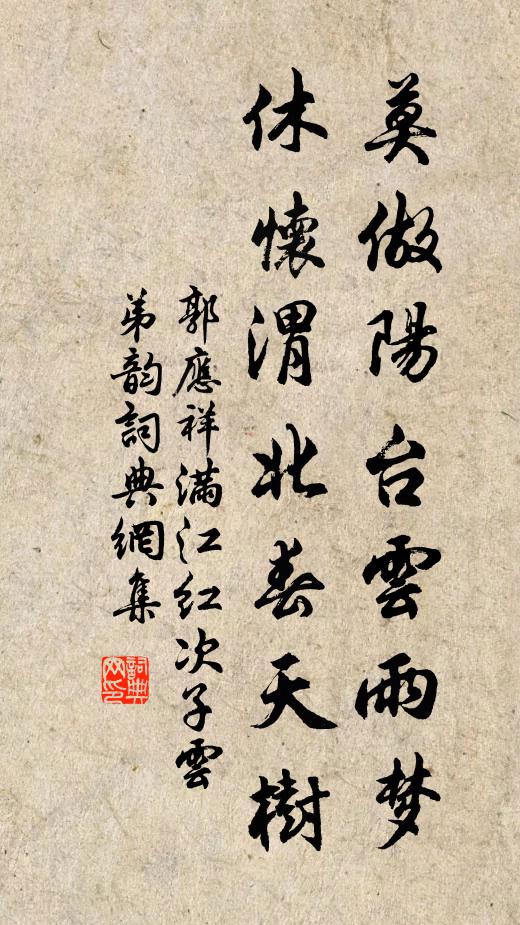 莫做陽台雲雨梦
休懷渭北春天樹
郭應祥满江红次子雲
弟韵詞典網集
詞典
网印